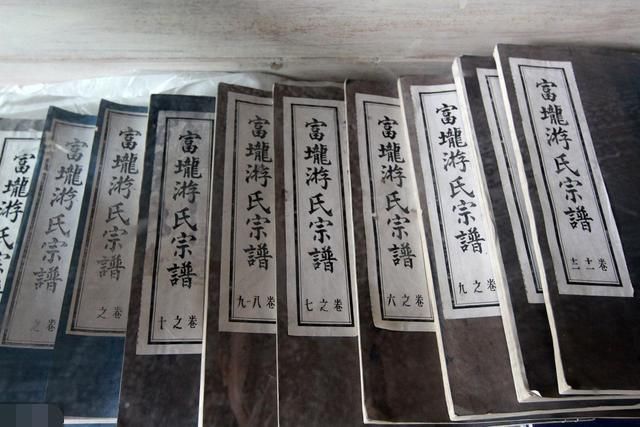 富壠游氏宗譜
富壠游氏宗譜
卷之
富壠游氏宗譜
卷之
富壠游氏宗譜
卷之十
富壠游氏宗譜
卷八·九
富壠游氏宗譜
卷之七
富壠游氏宗譜
卷之六
富壠游氏宗譜
卷之九
富壠游氏宗譜
卷十一十二